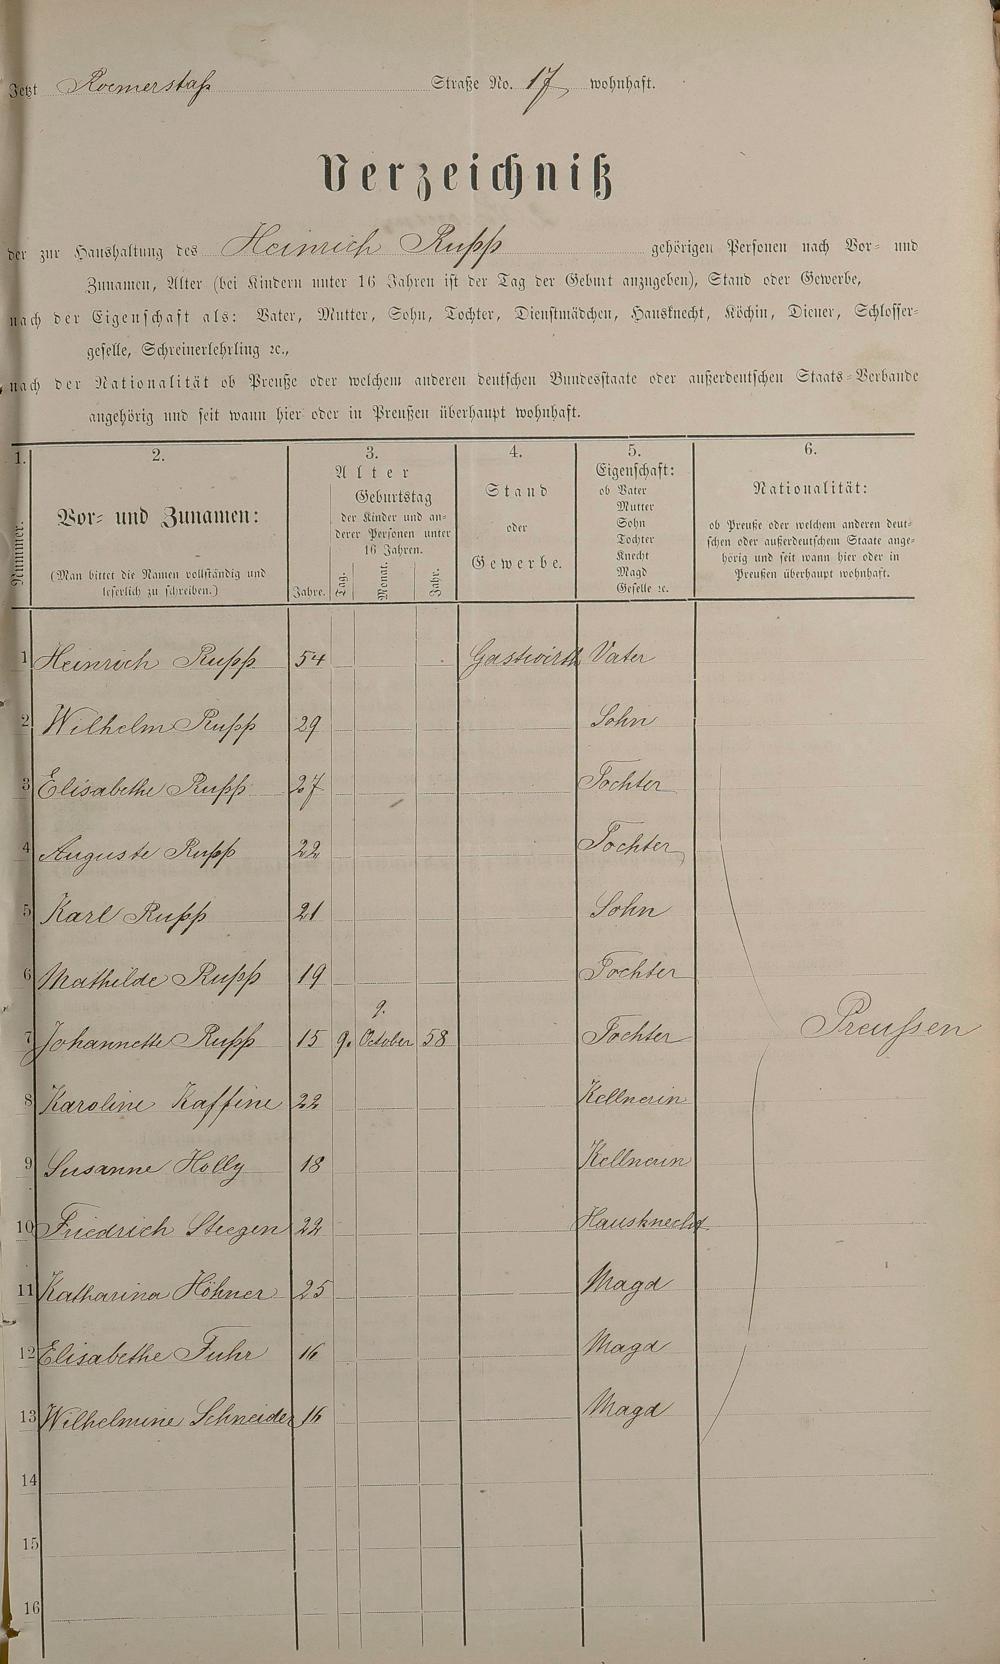 Jetzt Roemerstaß Straße No. 17 wohnhaft.
Verzeichniß
der zur Haushaltung des Heinrich Rupp gehörigen Personen nach Vor- und
Zunamen, Alter (bei Kindern unter 16 Jahren ist der Tag der Geburt anzugeben), Stand oder Gewerbe,
nach der Eigenschaft als: Vater, Mutter, Sohn, Tochter, Dienstmädchen, Hausknecht, Köchin, Diener, Schlosser-
geselle, Schreinerlehrling ꝛc.,
nach der Nationalität ob Preuße oder welchem anderen deutschen Bundesstaate oder außerdeutschen Staats-Verbande
angehörig und seit wann hier oder in Preußen überhaupt wohnhaft.
1.
Nummer.
2.
Vor- und Zunamen:
(Man bittet die Namen vollständig und
leserlich zu schreiben.)
3.
Alter
Jahre.
Geburtstag
der Kinder und an-
derer Personen unter
16 Jahren.
Tag. Monat. Jahr.
4.
Stand
oder
Gewerbe.
5.
Eigenschaft:
ob Vater
Mutter
Sohn
Tochter
Knecht
Magd
Geselle ꝛc.
6.
Nationalität:
ob Preuße oder welchem anderen deut-
schen oder außerdeutschem Staate ange-
hörig und seit wann hier oder in
Preußen überhaupt wohnhaft.
1 Heinrich Rupp 54 Gastwirth Vater
2 Wilhelm Rupp 29 Sohn
3 Elisabethe Rupp 27 Tochter
4 Auguste Rupp 22 Tochter
5 Karl Rupp 21 Sohn
6 Mathilde Rupp 19 Tochter
9.
7 Johannette Rupp 15 9. October 58 Tochter Preußen
8 Karoline Kaffine 22 Kellnerin
9 Susanne Holly 18 Kellnerin
10 Friedrich Steegen 22 Hausknecht
11 Katharina Höhner 25 Magd
12 Elisabethe Fuhr 16 Magd
13 Wilhelmine Schneider 16 Magd
14
15
16